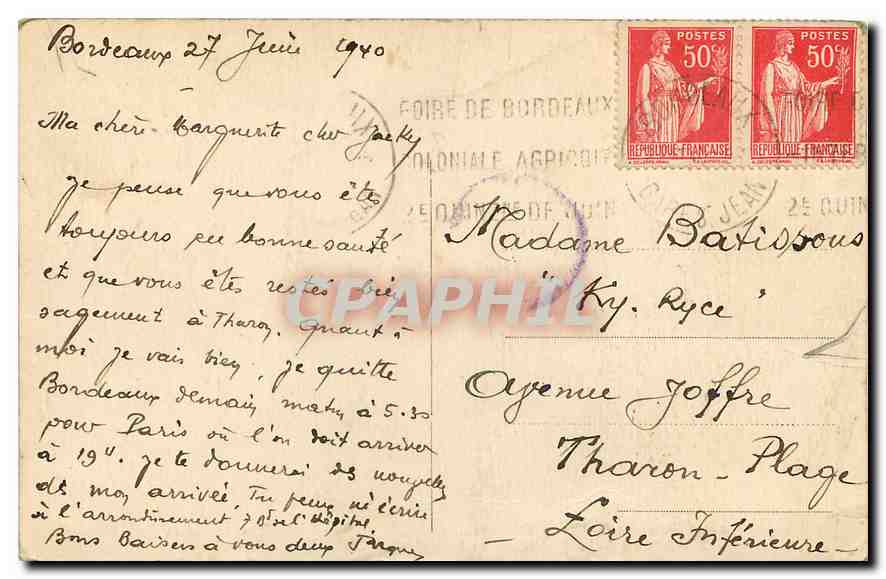 Bordeaux 27 Juin 1940
Ma chère Marguerite cher Jacky
je pense que vous êtes
toujours en bonne santé
et que vous êtes restés bien
sagement à Tharon. Quant à
moi je vais bien, je quitte
Bordeaux demain matin à 5.30
pour Paris où l'on doit arriver
à 19H. je te donnerai des nouvelles
dès mon arrivée Tu peux m'écrire
à l'arrondissement 7 Bd de l'Hôpital
Bons Baisers à vous deux Jacques
POSTES
50c
REPUBLIQUE-FRANÇAISE
POSTES
50c
REPUBLIQUE-FRANÇAISE
FOIRE DE BORDEAUX
COLONIALE AGRICOLE
2E QUINne DE JUIN
2E QUIN
GARE ST JEAN
Madame Batispous
"Ky-Ryce"
Avenue Joffre
Tharon-Plage
Loire Inférieure-
CPAPHIL